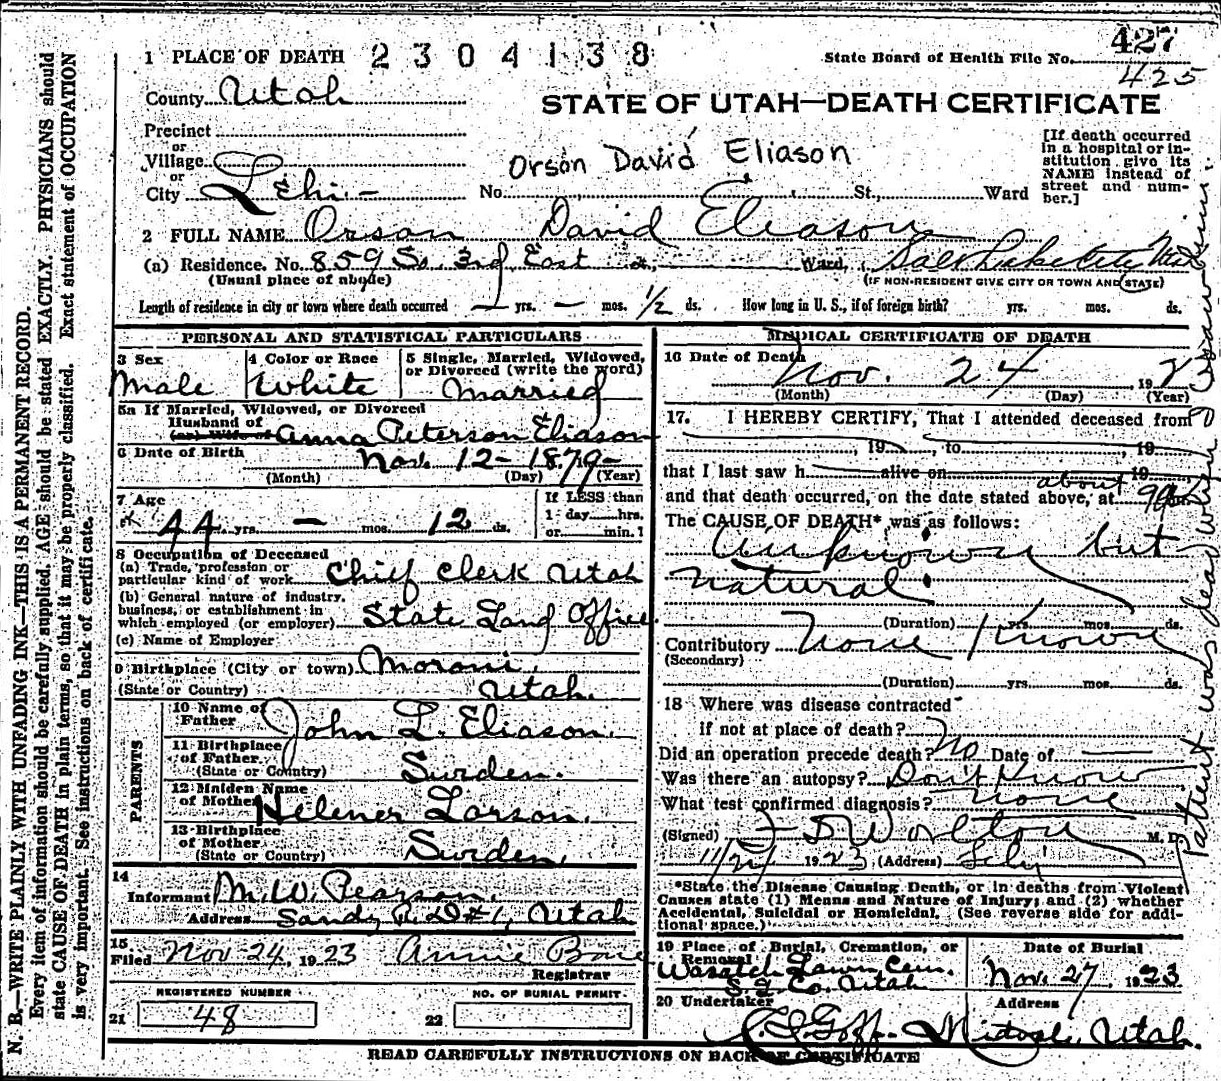 427
1 PLACE OF DEATH 2304138 State Board of Health File No.
425
County Utah
STATE OF UTAH—DEATH CERTIFICATE
Precinct
or
Village
or
City Lehi
Orson David Eliason
No. St. Ward
[If death occurred
in a hospital or in-
stitution give its
NAME instead of
street and num-
ber.]
2 FULL NAME Orson David Eliason
(a) Residence. No. 859 So. 3rd East St, Ward, Salt Lake City Utah
(Usual place of abode) (IF NON-RESIDENT GIVE CITY OR TOWN AND STATE)
Length of residence in city or town where death occurred — yrs. — mos. 1/2 ds. How long in U. S., if of foreign birth? yrs. mos. ds.
PERSONAL AND STATISTICAL PARTICULARS
3 Sex
Male
4 Color or Race
White
5 Single, Married, Widowed,
or Divorced (write the word)
Married
5a If Married, Widowed, or Divorced
Husband of
(or) Wife of Anna Peterson Eliason
6 Date of Birth Nov. 12 - 1879 -
(Month) (Day) (Year)
7 Age
44 yrs. — mos. 12 ds.
If LESS than
1 day hrs.
or min.
8 Occupation of Deceased
(a) Trade, profession or
particular kind of work Chief Clerk Utah
(b) General nature of industry,
business, or establishment in
which employed (or employer) State Land Office
(c) Name of Employer
9 Birthplace (City or town) Moroni,
(State or Country) Utah.
PARENTS
10 Name of
Father John L. Eliason.
11 Birthplace
of Father
(State or Country) Sweden.
12 Maiden Name
of Mother Helener Larson.
13 Birthplace
of Mother
(State or Country) Sweden.
14
Informant M. W. Pearson.
Address Sandy R.D. #1, Utah
15.
Filed Nov 24, 1923 Annie
Registrar
REGISTERED NUMBER
21 48
NO. OF BURIAL PERMIT.
22
MEDICAL CERTIFICATE OF DEATH
16 Date of Death Nov. 24, 192
(Month) (Day) (Year)
17. I HEREBY CERTIFY, That I attended deceased from
, 19 , to , 19
that I last saw h alive on 19
and that death occurred, on the date stated above, at about 9 m.
The CAUSE OF DEATH* was as follows:
Unknown but
natural
(Duration) yrs. mos. ds.
Contributory None Known
(Secondary)
(Duration) yrs. mos. ds.
18 Where was disease contracted
if not at place of death?
Did an operation precede death? No Date of —
Was there an autopsy? Don't Know
What test confirmed diagnosis? None
(Signed) Worlton M. D.
11/24 1923 (Address) Lehi
*State the Disease Causing Death, or in deaths from Violent
Causes state (1) Means and Nature of Injury; and (2) whether
Accidental, Suicidal or Homicidal. (See reverse side for addi-
tional space.)
19 Place of Burial, Cremation, or
Removal
Wasatch Lawn Cem.
S. L. Co. Utah
Date of Burial
Nov. 27, 1923
20 Undertaker
Goff
Address
Midvale, Utah.
READ CAREFULLY INSTRUCTIONS ON BACK OF CERTIFICATE
N. B.—WRITE PLAINLY WITH UNFADING INK—THIS IS A PERMANENT RECORD.
Every item of information should be carefully supplied. AGE should be stated EXACTLY. PHYSICIANS should
state CAUSE OF DEATH in plain terms, so that it may be properly classified. Exact statement of OCCUPATION
is very important. See instructions on back of certificate.
Patient was dead when I saw him.